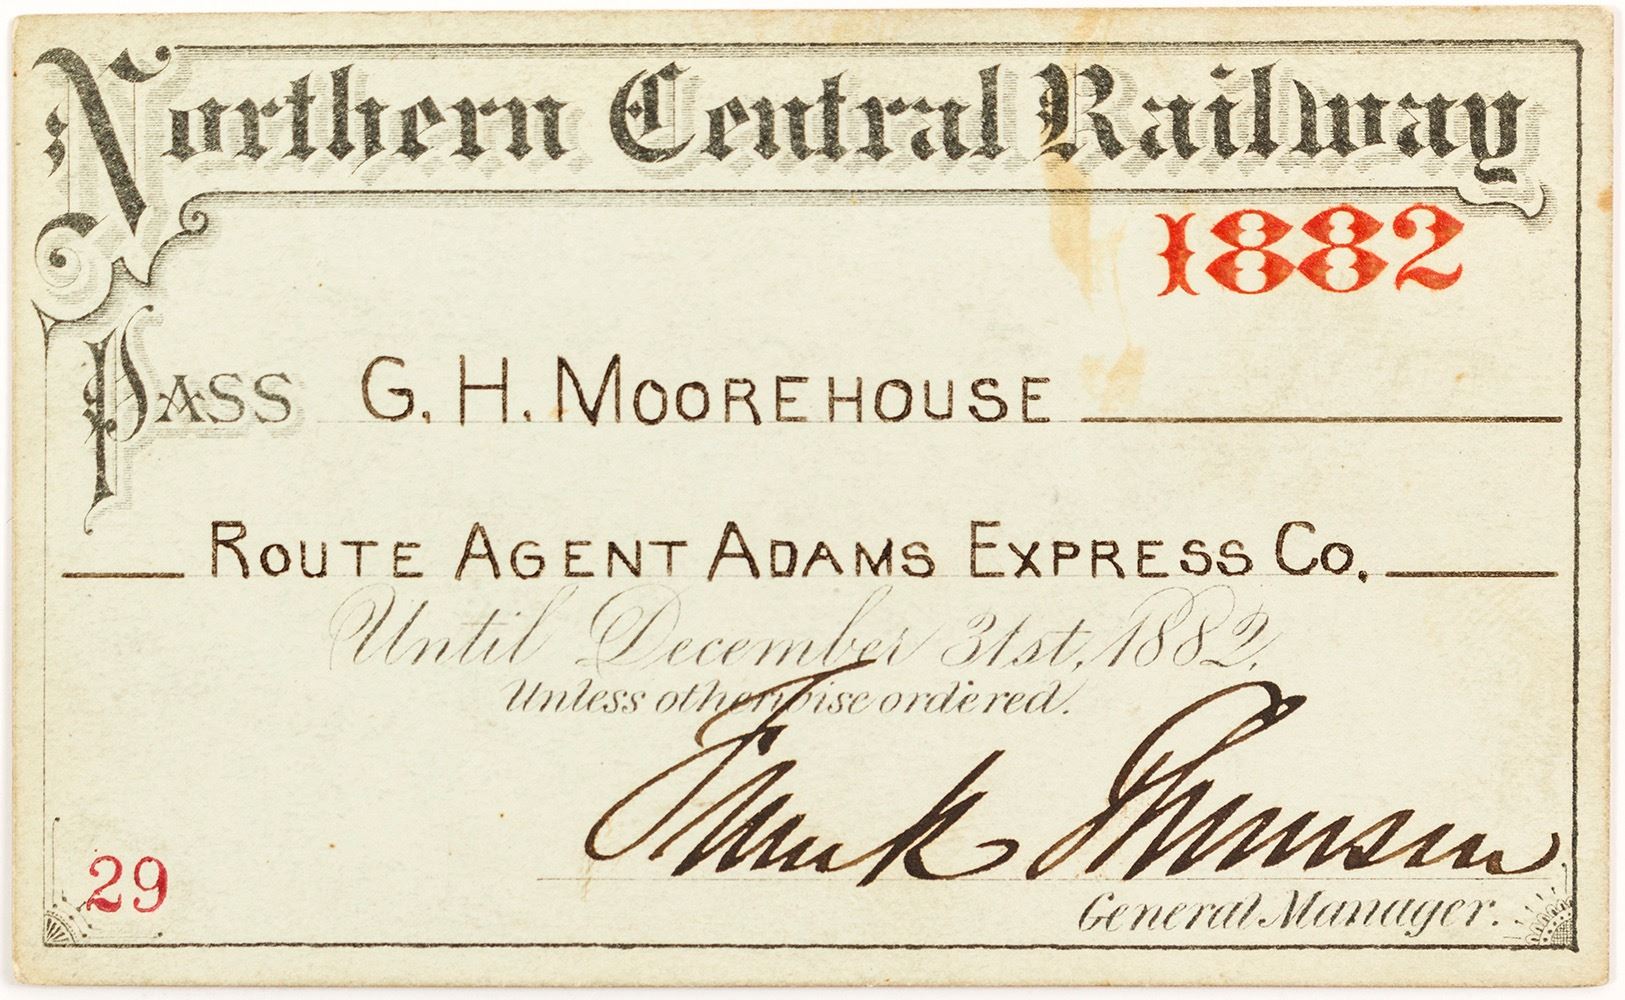 Northern Central Railway
1882
Pass G. H. Moorehouse
Route Agent Adams Express Co.
Until December 31st, 1882,
Unless otherwise ordered.
Frank Thomson
29
General Manager.